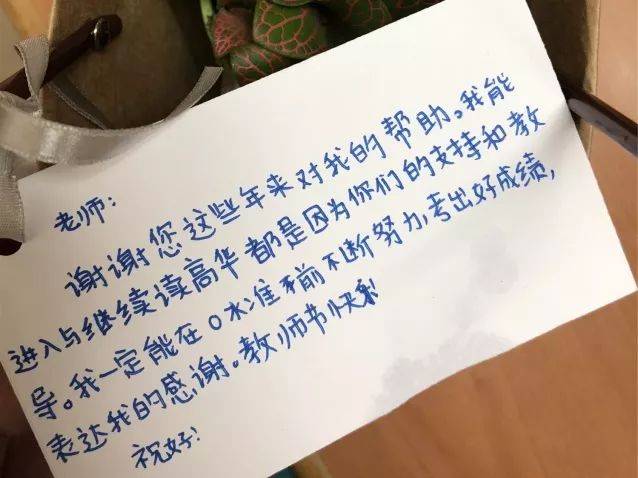 老师：
谢谢您这些年来对我的帮助。我能
进入与继续读高华都是因为你们的支持和教
导。我一定能在O水准前不断努力，考出好成绩，
表达我的感谢。教师节快乐
祝好！